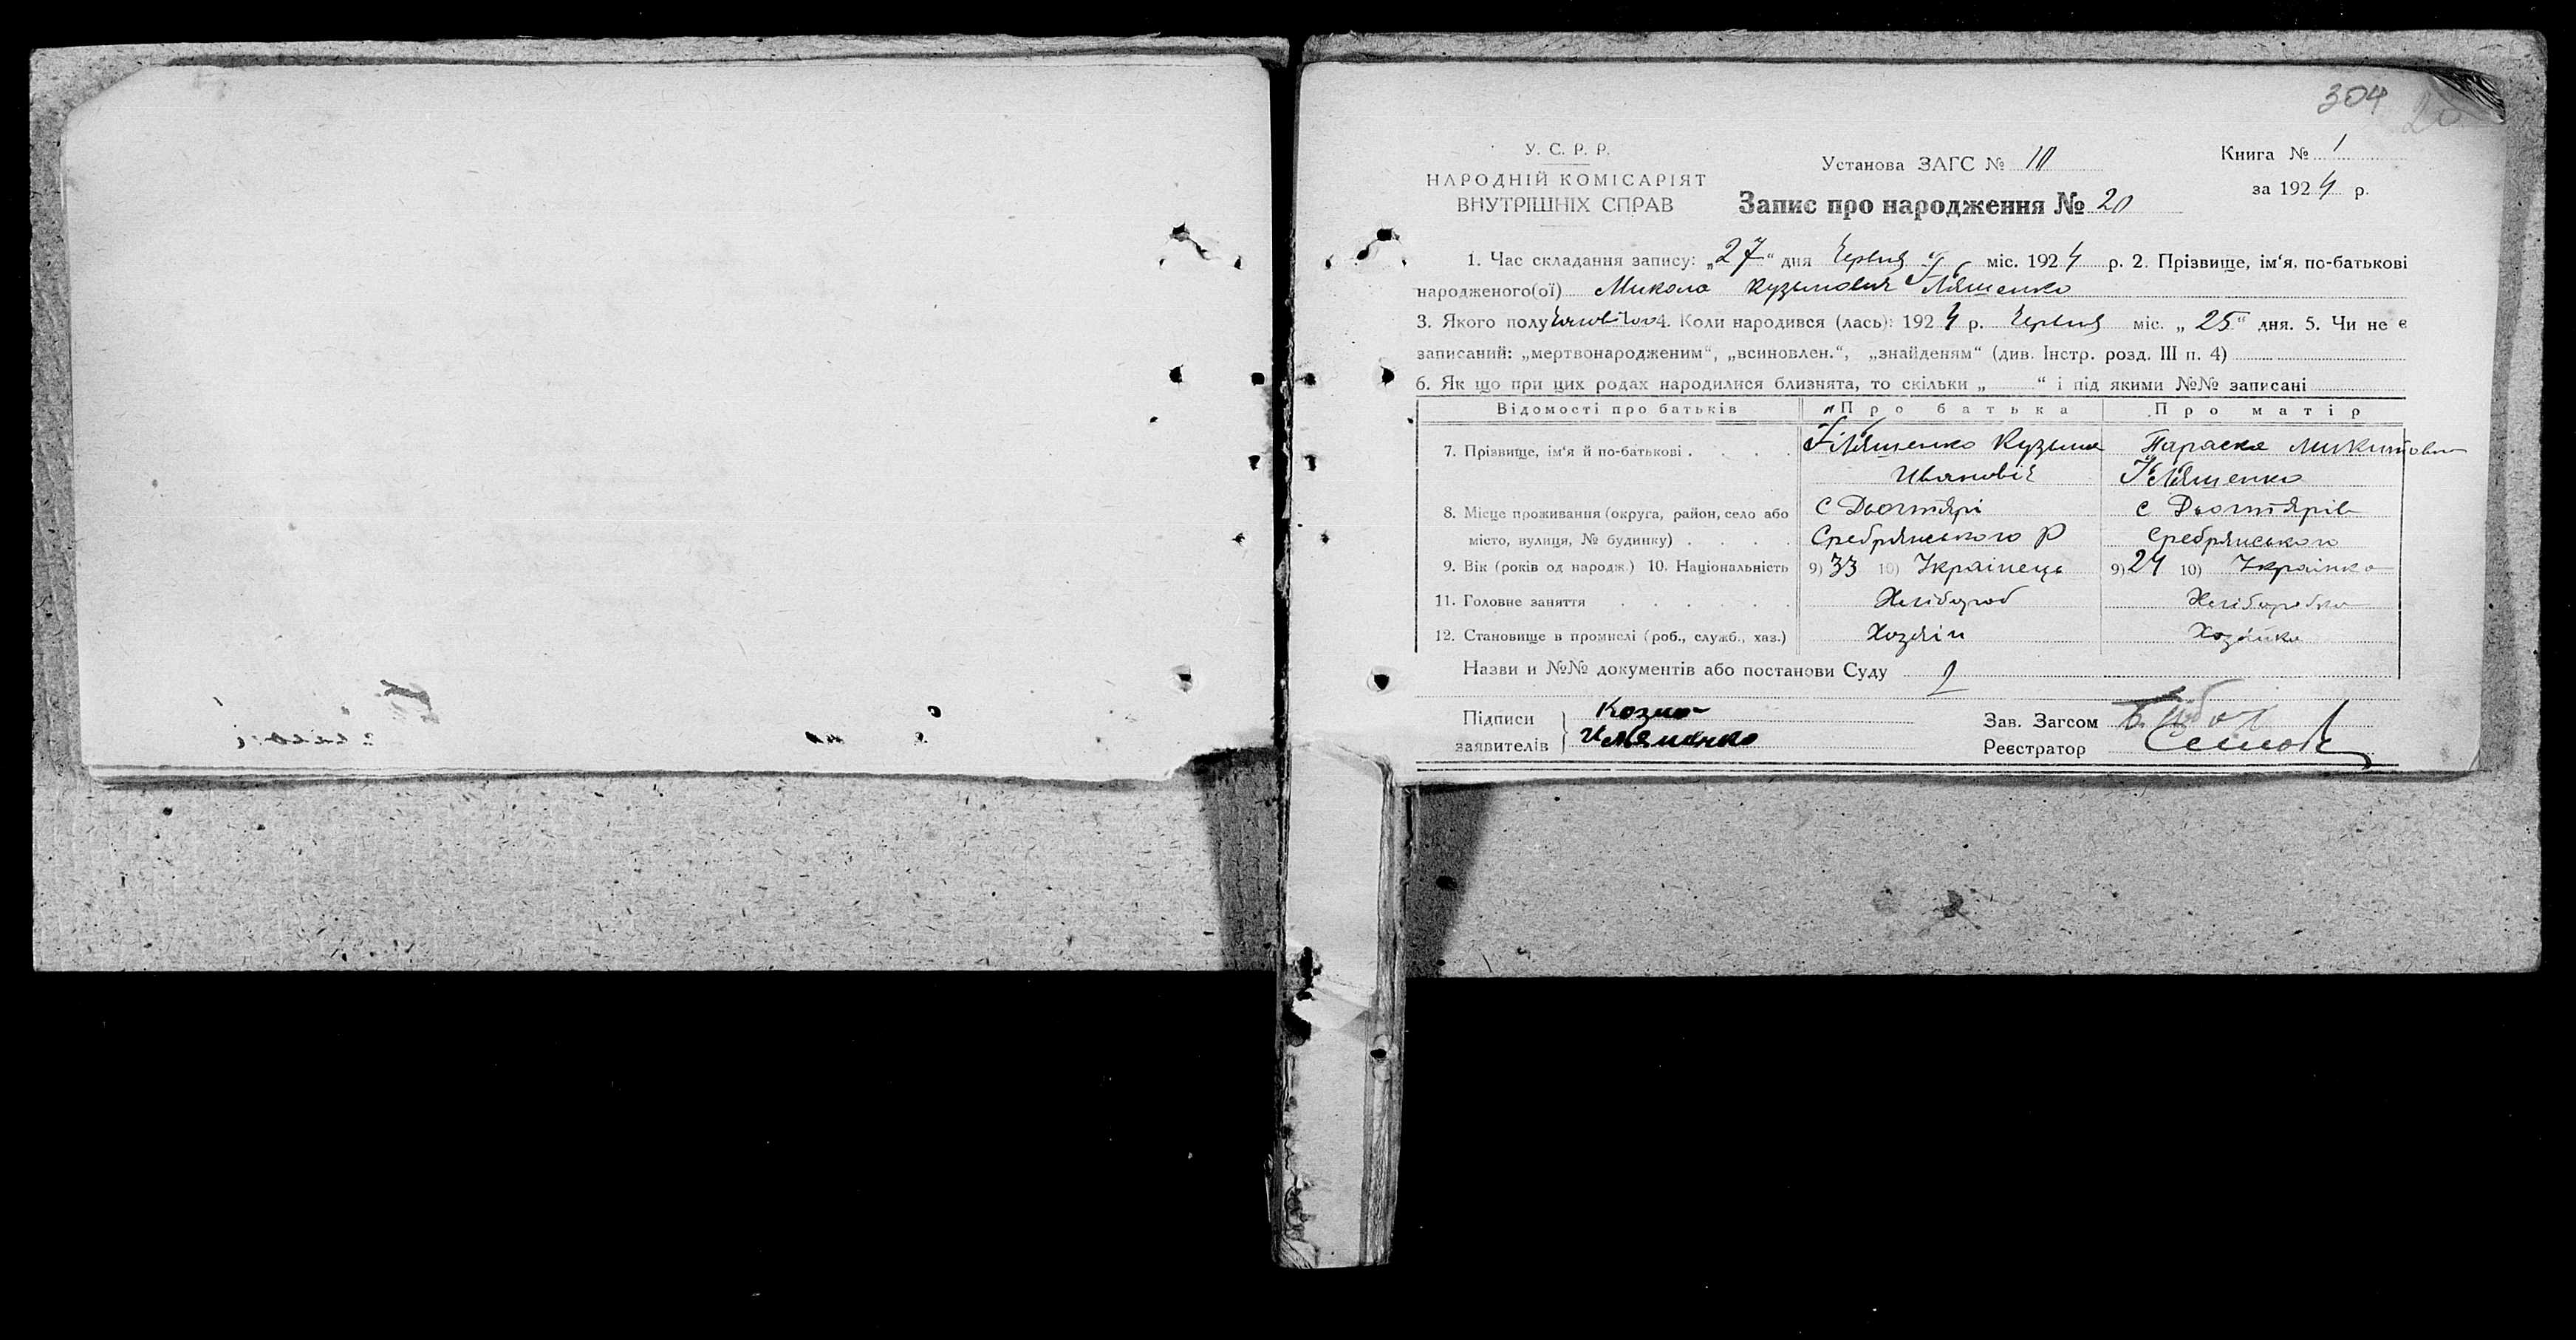 304
20
У. С. Р. Р.
НАРОДНІЙ КОМІСАРІЯТ
ВНУТРІШНІХ СПРАВ
Установа ЗАГС № 10
Книга № 1
за 1924 р.
Запис про народження № 20
1. Час складання запису: „27“ дня Червня міс. 1924 р. 2. Прізвище, ім‘я, по-батькові
народженого(ої) Микола Кузьмович Ілляшенко
3. Якого полу 4. Коли народився (лась): 1924 р. Червня міс. „25“ дня. 5. Чи не є
записаний: „мертвонародженим“, „всиновлен.“, „знайденям“ (див. Інстр. розд. III п. 4)
6. Як що при цих родах народилися близнята, то скільки „ “ і під якими №№ записані
Відомості про батьків Про батька Про матір
7. Прізвище, ім‘я й по-батькові Ілляшенко Кузьма Параска Микитовна
Іванович Ілляшенко
8. Місце проживання (округа, район, село або с Дьогтярі с Дьогтярів
місто, вулиця, № будинку) Сребрянського Р Сребрянського
9. Вік (років од народж.) 10. Національність 9) 33 10) Українець 9) 24 10) Українка
11. Головне заняття Хлібороб Хліборобка
12. Становище в промислі (роб., служб., хаз.) Хозяін Хозяйка
Назви и №№ документів або постанови Суду
Підписи Козма
заявителів Иляшенко
Зав. Загсом
Реєстратор